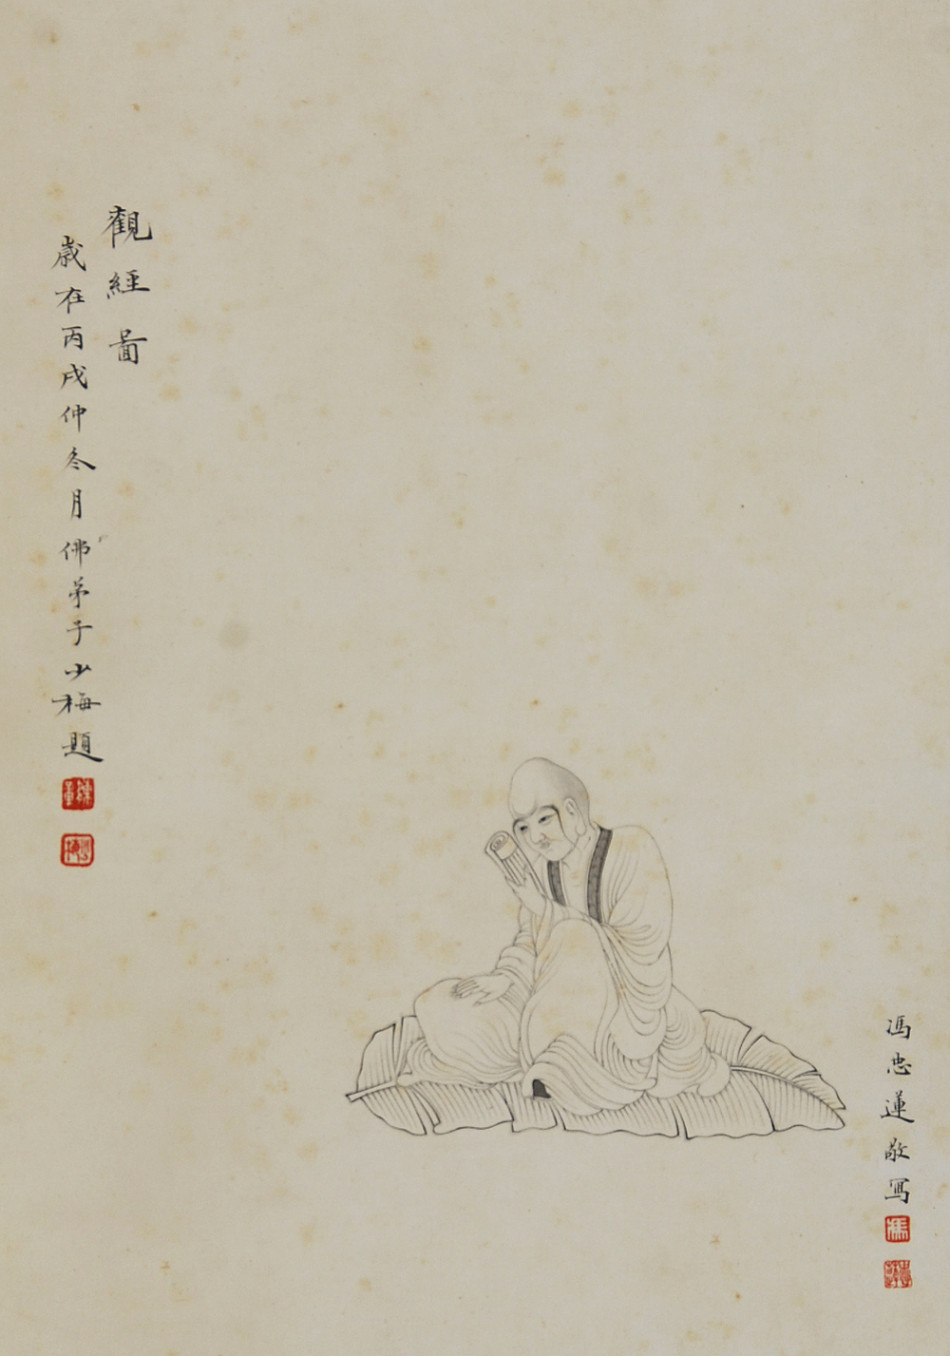 觀經啚
歲在丙戌仲冬月佛弟子少梅題
馮忠蓮敬寫